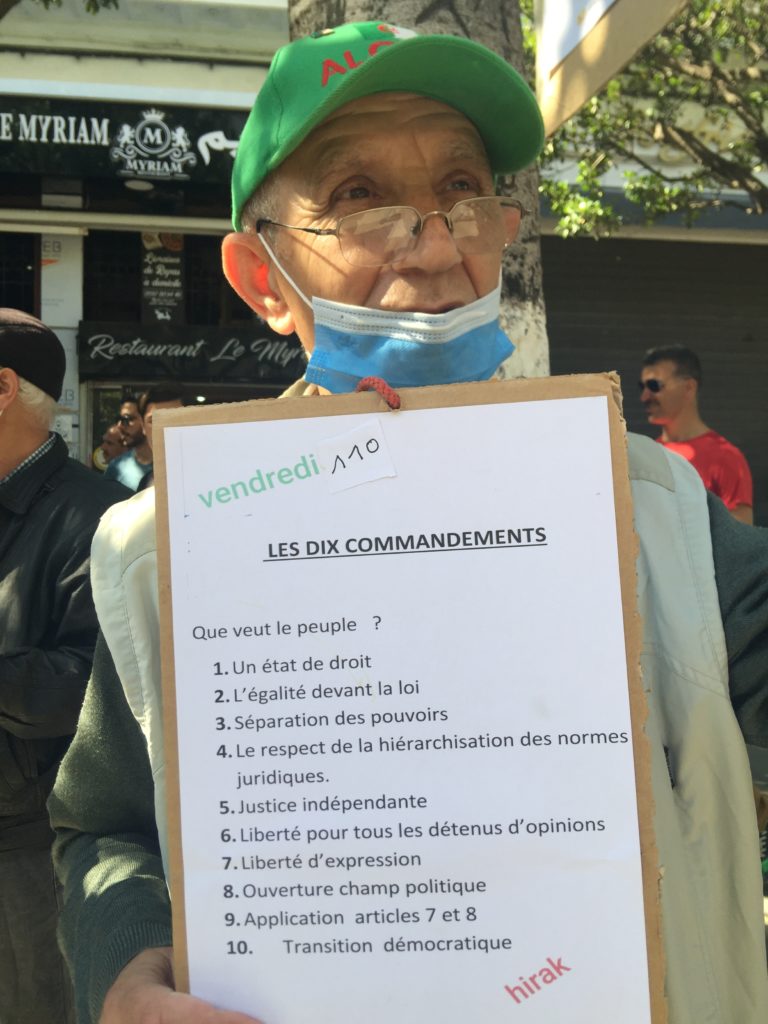 ALG
E MYRIAM
M
MYRIAM
Livraison
de Repas
à domicile
Restaurant Le Myr
vendredi 110
LES DIX COMMANDEMENTS
Que veut le peuple ?
1. Un état de droit
2. L'égalité devant la loi
3. Séparation des pouvoirs
4. Le respect de la hiérarchisation des normes
juridiques.
5. Justice indépendante
6. Liberté pour tous les détenus d'opinions
7. Liberté d'expression
8. Ouverture champ politique
9. Application articles 7 et 8
10. Transition démocratique
hirak